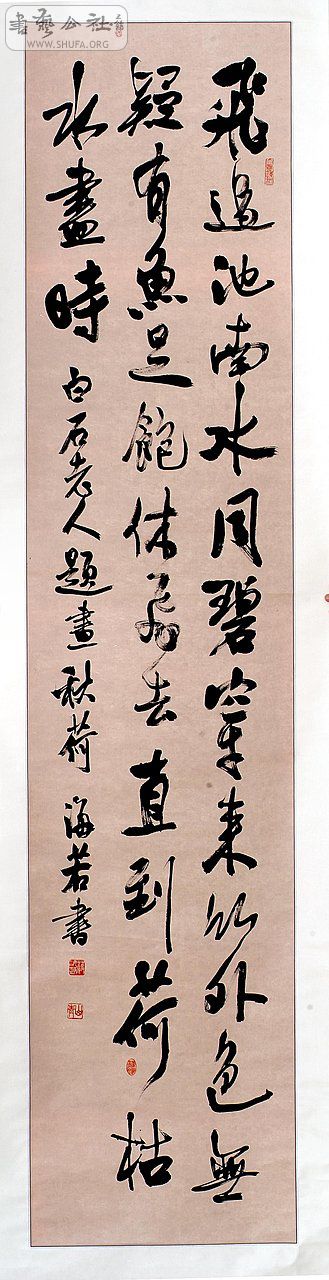 書藝公社
WWW.SHUFA.ORG
飛過池南水同碧穿來竹外色無
疑有魚足飽休飛去直到荷枯
水盡時
白石老人題畫秋荷 海若書